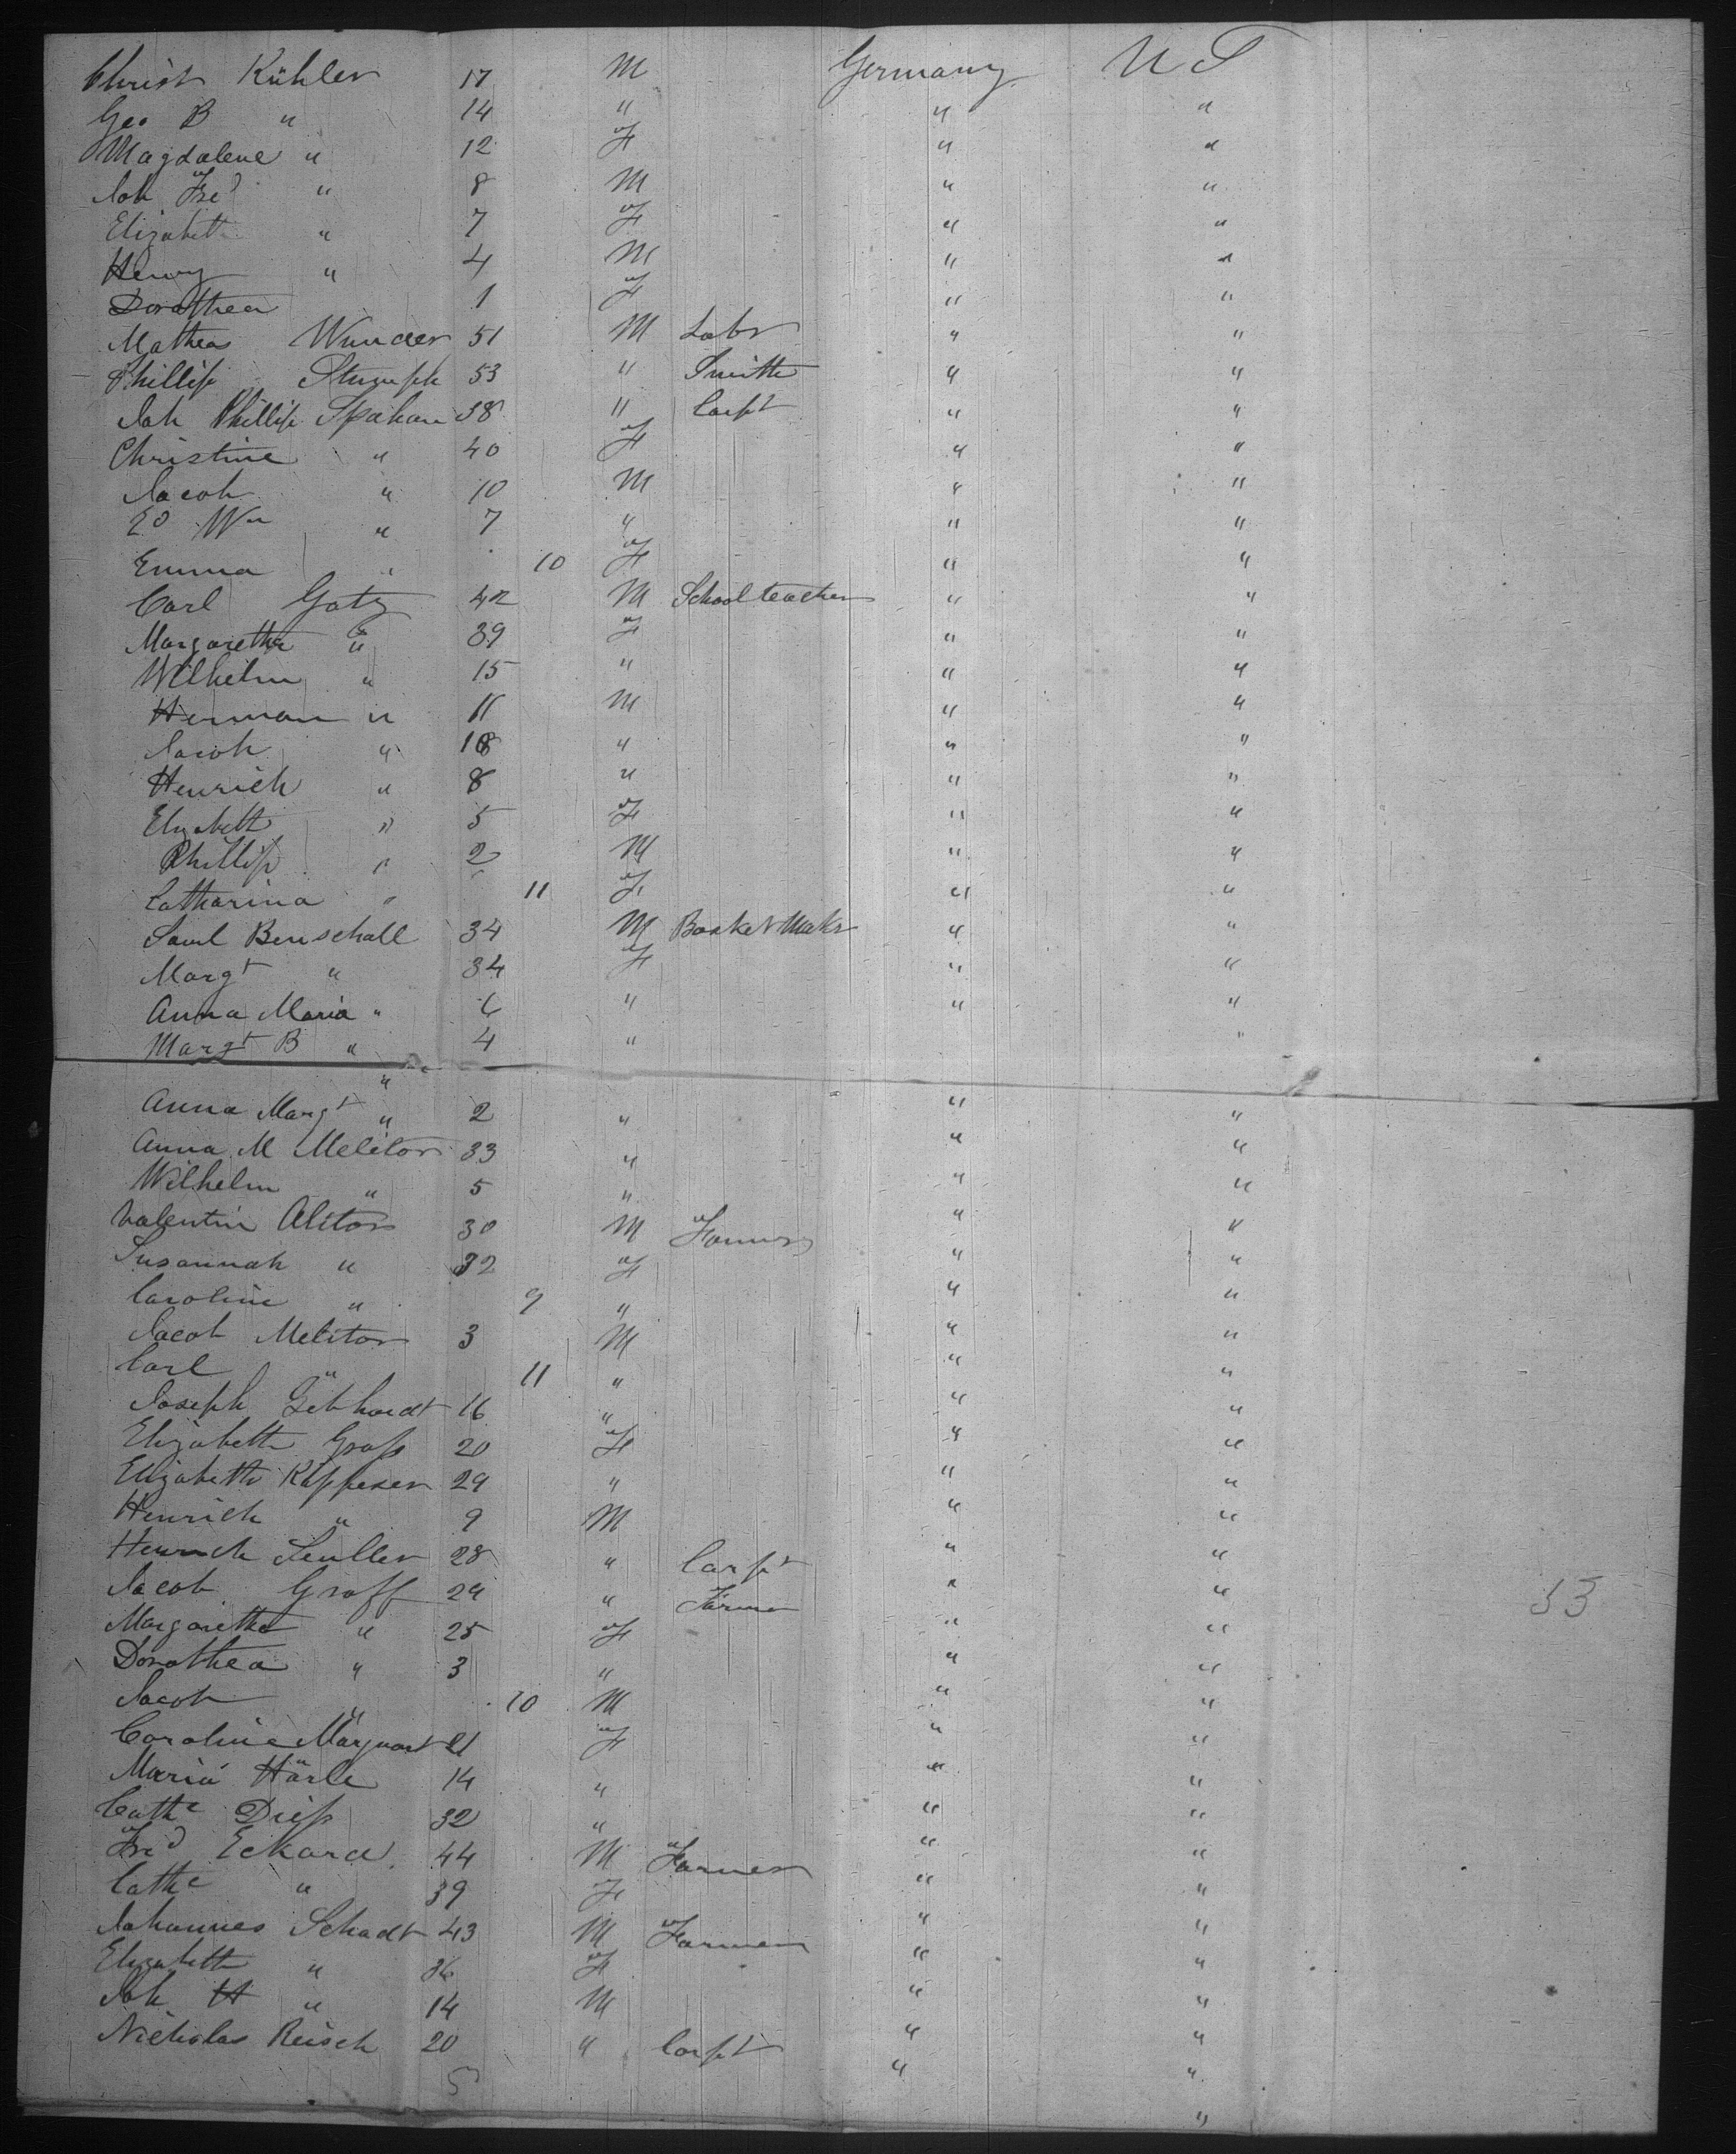 Christ Kühler 17 M Germany U S
Geo B " 14 " " "
Magdalene " 12 F " "
Joh Fred " 8 M " "
Elizabeth " 7 F " "
Henry " 4 M " "
Dorothea 1 F " "
Mathias Wunder 51 M Labr " "
Phillip Stumph 53 " Smith " "
Joh Phillip Spahn 38 " Carpt " "
Christine " 40 F " "
Jacob " 10 M " "
Ed Wm " 7 " " "
Emma " 10 F " "
Carl Gotz 42 M Schoolteacher " "
Margaretha " 39 F " "
Wilhelm " 15 " " "
Herman " 11 M " "
Jacob " 10 " " "
Henrich " 8 " " "
Elizabeth " 5 F " "
Phillip " 2 M " "
Catharina " 11 F " "
Saml Benschall 34 M Basket Makr " "
Margt " 34 F " "
Anna Maria " 6 " " "
Margt B " 4 " "
"
Anna Margt " 2 " " "
Anna M Melitor 33 " " "
Wilhelm " 5 " " "
Valentin Alitor 30 M Farmer " "
Susannah " 32 F " "
Caroline " 9 " " "
Jacob Melitor 3 M " "
Carl " 11 " " "
Joseph Gebhardt 16 " " "
Elizabeth Groß 20 F " "
Elizabeth Kappeser 29 " " "
Henrich " 9 M " "
Henrich Seuller 28 " Carpt " "
Jacob Groff 29 " Farmer " "
Margaretha " 25 F " "
Dorothea " 3 " " "
Jacob " 10 M " "
Caroline Marquart 21 F " "
Maria Härle 14 " " "
Cathe Dieß 32 " " "
Fred Eckard 44 M Farmer " "
Cathe " 39 F " "
Johannes Schadt 43 M Farmer " "
Elizabeth " 36 F " "
Joh H " 14 M " "
Nicholas Reisch 20 " Carpt " "
5 " "
"
53